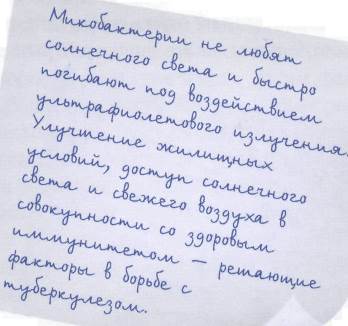 Микобактерии не любят
солнечного света и быстро
погибают под воздействием
ультрафиолетового излучения.
Улучшение жилищных
условий, доступ солнечного
света и свежего воздуха в
совокупности со здоровым
иммунитетом – решающие
факторы в борьбе с
туберкулезом.